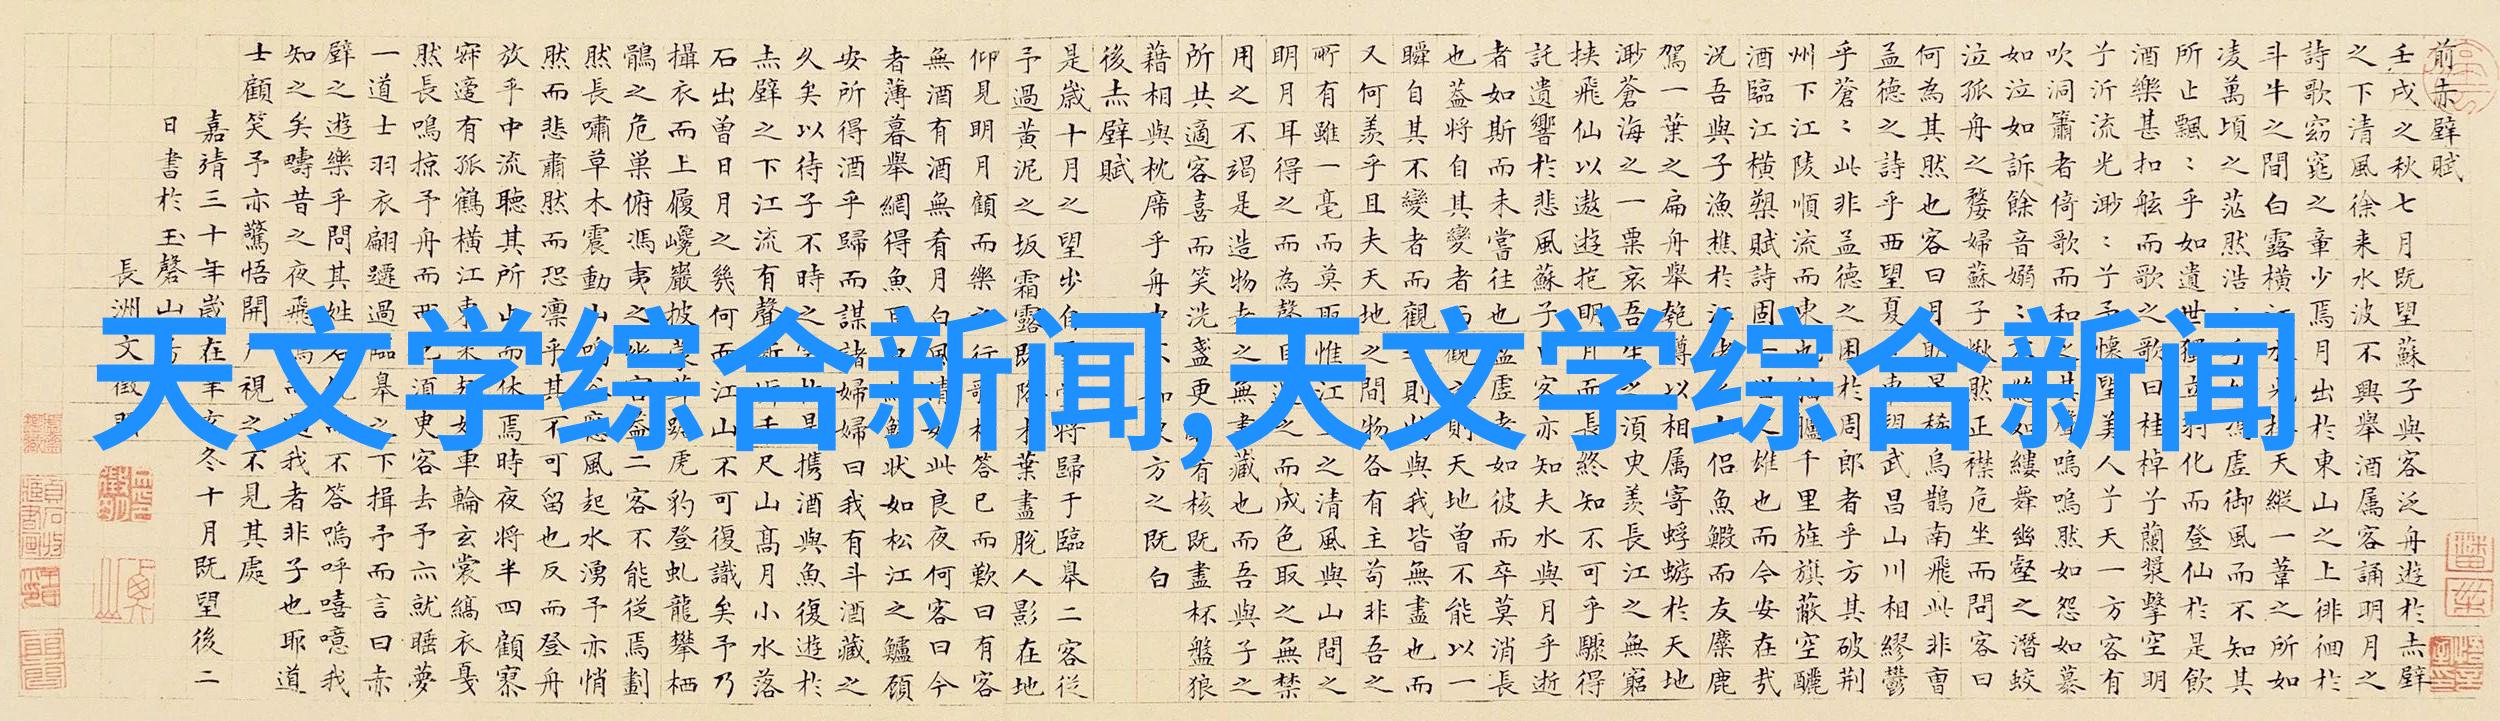 前赤壁賦
壬戌之秋七月既望蘇子與客泛舟遊於赤壁
之下清風徐来水波不興舉酒属客誦明月之
詩歌窈窕之章少焉月出於東山之上徘徊於
斗牛之間白露横江水光接天縱一葦之所如
凌萬頃之茫然浩浩乎如馮虚御風而不知其
所止飄〻乎如遺世獨立羽化而登仙於是飲
酒樂甚扣舷而歌之歌曰桂棹兮蘭槳擊空明
兮泝流光渺〻兮予懷望美人兮天一方客有
吹洞簫者倚歌而和之其聲嗚嗚然如怨如慕
如泣如訴餘音嫋〻不絶如縷舞幽壑之潛蛟
泣孤舟之嫠婦蘇子愀然正襟危坐而問客曰
何為其然也客曰月明星稀烏鵲南飛此非曹
孟德之詩乎西望夏口東望武昌山川相繆鬱
乎蒼〻此非孟德之困於周郎者乎方其破荆
州下江陵順流而東也舳艫千里旌旗蔽空釃
酒臨江横槊賦詩固一世之雄也而今安在哉
况吾與子漁樵於江渚之上侶魚鰕而友麋鹿
駕一葉之扁舟舉匏樽以相属寄蜉蝣於天地
渺蒼海之一粟哀吾生之須臾羨長江之無窮
挟飛仙以遨遊抱明月而長終知不可乎驟得
託遺響於悲風蘇子曰客亦知夫水與月乎逝
者如斯而未嘗往也盈虚者如彼而卒莫消長
也蓋將自其變者而觀之則天地曽不能以一
瞬自其不變者而觀之則物與我皆無盡也而
又何羨乎且夫天地之間物各有主苟非吾之
所有雖一毫而莫取惟江上之清風與山間之
明月耳得之而為聲目遇之而成色取之無禁
用之不竭是造物者之無盡藏也而吾與子之
所共適客喜而笑洗盞更酌肴核既盡杯盤狼
藉相與枕席乎舟中不知東方之既白
後赤壁賦
是歲十月之望步自雪堂將歸于臨皋二客從
予過黄泥之坂霜露既降木葉盡脱人影在地
仰見明月顧而樂之行歌相答已而歎曰有客
無酒有酒無肴月白風清如此良夜何客曰今
者薄暮舉網得魚巨口細鱗状如松江之鱸顧
安所得酒乎歸而謀諸婦婦曰我有斗酒藏之
久矣以待子不時之需於是攜酒與魚復遊於
赤壁之下江流有聲斷岸千尺山髙月小水落
石出曽日月之幾何而江山不可復識矣予乃
攝衣而上履巉巖披蒙茸踞虎豹登虬龍攀栖
鶻之危巢俯馮夷之幽宫盖二客不能從焉劃
然長嘯草木震動山鳴谷應風起水湧予亦悄
然而悲肅然而恐凛乎其不可留也反而登舟
放乎中流聽其所止而休焉時夜將半四顧寂
寥適有孤鶴横江東来翅如車輪玄裳縞衣戛
然長鳴掠予舟而西也須臾客去予亦就睡夢
一道士羽衣翩躚過臨皋之下揖予而言曰赤
壁之遊樂乎問其姓名俛而不答嗚呼噫嘻我
知之矣疇昔之夜飛鳴而過我者非子也耶道
士顧笑予亦驚悟開户視之不見其處
嘉靖三十年歲在辛亥冬十月既望後二
日書於玉磬山房
長洲文徵明
天文学综合新闻,天文学综合新闻